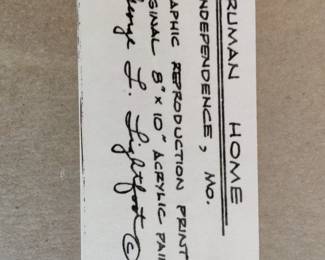 RUMAN HOME
NDEPENDENCE, MO.
APHIC REPRODUCTION PRINT
GINAL 8"X10" ACRYLIC PAI
George L. Lightfoot ©